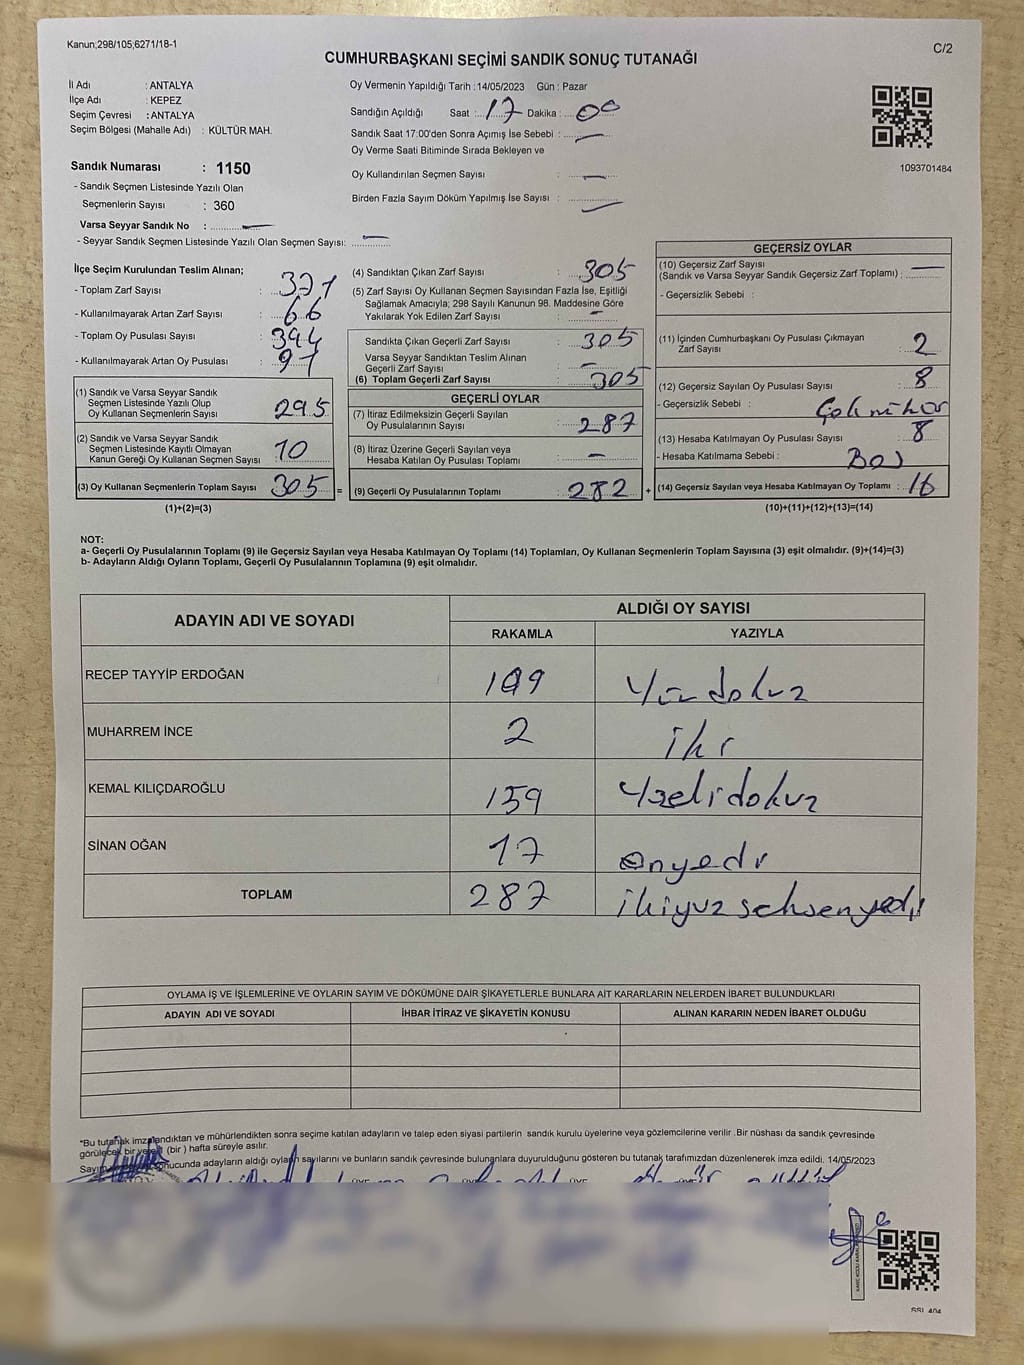 Kanun;298/105;6271/18-1
C/2
CUMHURBAŞKANI SEÇİMİ SANDIK SONUÇ TUTANAĞI
İl Adı : ANTALYA
İlçe Adı : KEPEZ
Seçim Çevresi : ANTALYA
Seçim Bölgesi (Mahalle Adı) : KÜLTÜR MAH.
Oy Vermenin Yapıldığı Tarih :14/05/2023 Gün : Pazar
Sandığın Açıldığı Saat : 17 Dakika : 00
Sandık Saat 17:00'den Sonra Açımış İse Sebebi : —
Oy Verme Saati Bitiminde Sırada Bekleyen ve
Oy Kullandırılan Seçmen Sayısı : —
Birden Fazla Sayım Döküm Yapılmış İse Sayısı : —
1093701484
Sandık Numarası : 1150
- Sandık Seçmen Listesinde Yazılı Olan
Seçmenlerin Sayısı : 360
Varsa Seyyar Sandık No : —
- Seyyar Sandık Seçmen Listesinde Yazılı Olan Seçmen Sayısı: —
İlçe Seçim Kurulundan Teslim Alınan;
- Toplam Zarf Sayısı : 371
- Kullanılmayarak Artan Zarf Sayısı : 66
- Toplam Oy Pusulası Sayısı : 394
- Kullanılmayarak Artan Oy Pusulası : 91
(1) Sandık ve Varsa Seyyar Sandık
Seçmen Listesinde Yazılı Olup
Oy Kullanan Seçmenlerin Sayısı 295
(2) Sandık ve Varsa Seyyar Sandık
Seçmen Listesinde Kayıtlı Olmayan
Kanun Gereği Oy Kullanan Seçmen Sayısı 10
(3) Oy Kullanan Seçmenlerin Toplam Sayısı 305 =
(1)+(2)=(3)
(4) Sandıktan Çıkan Zarf Sayısı : 305
(5) Zarf Sayısı Oy Kullanan Seçmen Sayısından Fazla İse, Eşitliği
Sağlamak Amacıyla; 298 Sayılı Kanunun 98. Maddesine Göre
Yakılarak Yok Edilen Zarf Sayısı : —
Sandıkta Çıkan Geçerli Zarf Sayısı : 305
Varsa Seyyar Sandıktan Teslim Alınan
Geçerli Zarf Sayısı : —
(6) Toplam Geçerli Zarf Sayısı : 305
GEÇERLİ OYLAR
(7) İtiraz Edilmeksizin Geçerli Sayılan
Oy Pusulasının Sayısı : 287
(8) İtiraz Üzerine Geçerli Sayılan veya
Hesaba Katılan Oy Pusulası Toplamı : —
(9) Geçerli Oy Pusulalarının Toplamı : 282 +
GEÇERSİZ OYLAR
(10) Geçersiz Zarf Sayısı
(Sandık ve Varsa Seyyar Sandık Geçersiz Zarf Toplamı) : —
- Geçersizlik Sebebi :
(11) İçinden Cumhurbaşkanı Oy Pusulası Çıkmayan
Zarf Sayısı : 2
(12) Geçersiz Sayılan Oy Pusulası Sayısı : 8
- Geçersizlik Sebebi : Çok mühür
(13) Hesaba Katılmayan Oy Pusulası Sayısı : 8
- Hesaba Katılmama Sebebi : Boş
(14) Geçersiz Sayılan veya Hesaba Katılmayan Oy Toplamı : 16
(10)+(11)+(12)+(13)=(14)
NOT:
a- Geçerli Oy Pusulalarının Toplamı (9) ile Geçersiz Sayılan veya Hesaba Katılmayan Oy Toplamı (14) Toplamları, Oy Kullanan Seçmenlerin Toplam Sayısına (3) eşit olmalıdır. (9)+(14)=(3)
b- Adayların Aldığı Oyların Toplamı, Geçerli Oy Pusulalarının Toplamına (9) eşit olmalıdır.
ADAYIN ADI VE SOYADI ALDIĞI OY SAYISI
RAKAMLA YAZIYLA
RECEP TAYYİP ERDOĞAN 109 Yüz dokuz
MUHARREM İNCE 2 iki
KEMAL KILIÇDAROĞLU 159 Yüzelidokuz
SİNAN OĞAN 17 onyedi
TOPLAM 287 ikiyuz seksenyedi
OYLAMA İŞ VE İŞLEMLERİNE VE OYLARIN SAYIM VE DÖKÜMÜNE DAİR ŞİKAYETLERLE BUNLARA AİT KARARLARIN NELERDEN İBARET BULUNDUKLARI
ADAYIN ADI VE SOYADI İHBAR İTİRAZ VE ŞİKAYETİN KONUSU ALINAN KARARIN NEDEN İBARET OLDUĞU
*Bu tutanak imzalandıktan ve mühürlendikten sonra seçime katılan adayların ve talep eden siyasi partilerin sandık kurulu üyelerine veya gözlemcilerine verilir .Bir nüshası da sandık çevresinde
görülecek bir yere 1 (bir ) hafta süreyle asılır.
sonucunda adayların aldığı oyların sayılarını ve bunların sandık çevresinde bulunanlara duyurulduğunu gösteren bu tutanak tarafımızdan düzenlenerek imza edildi. 14/05/2023